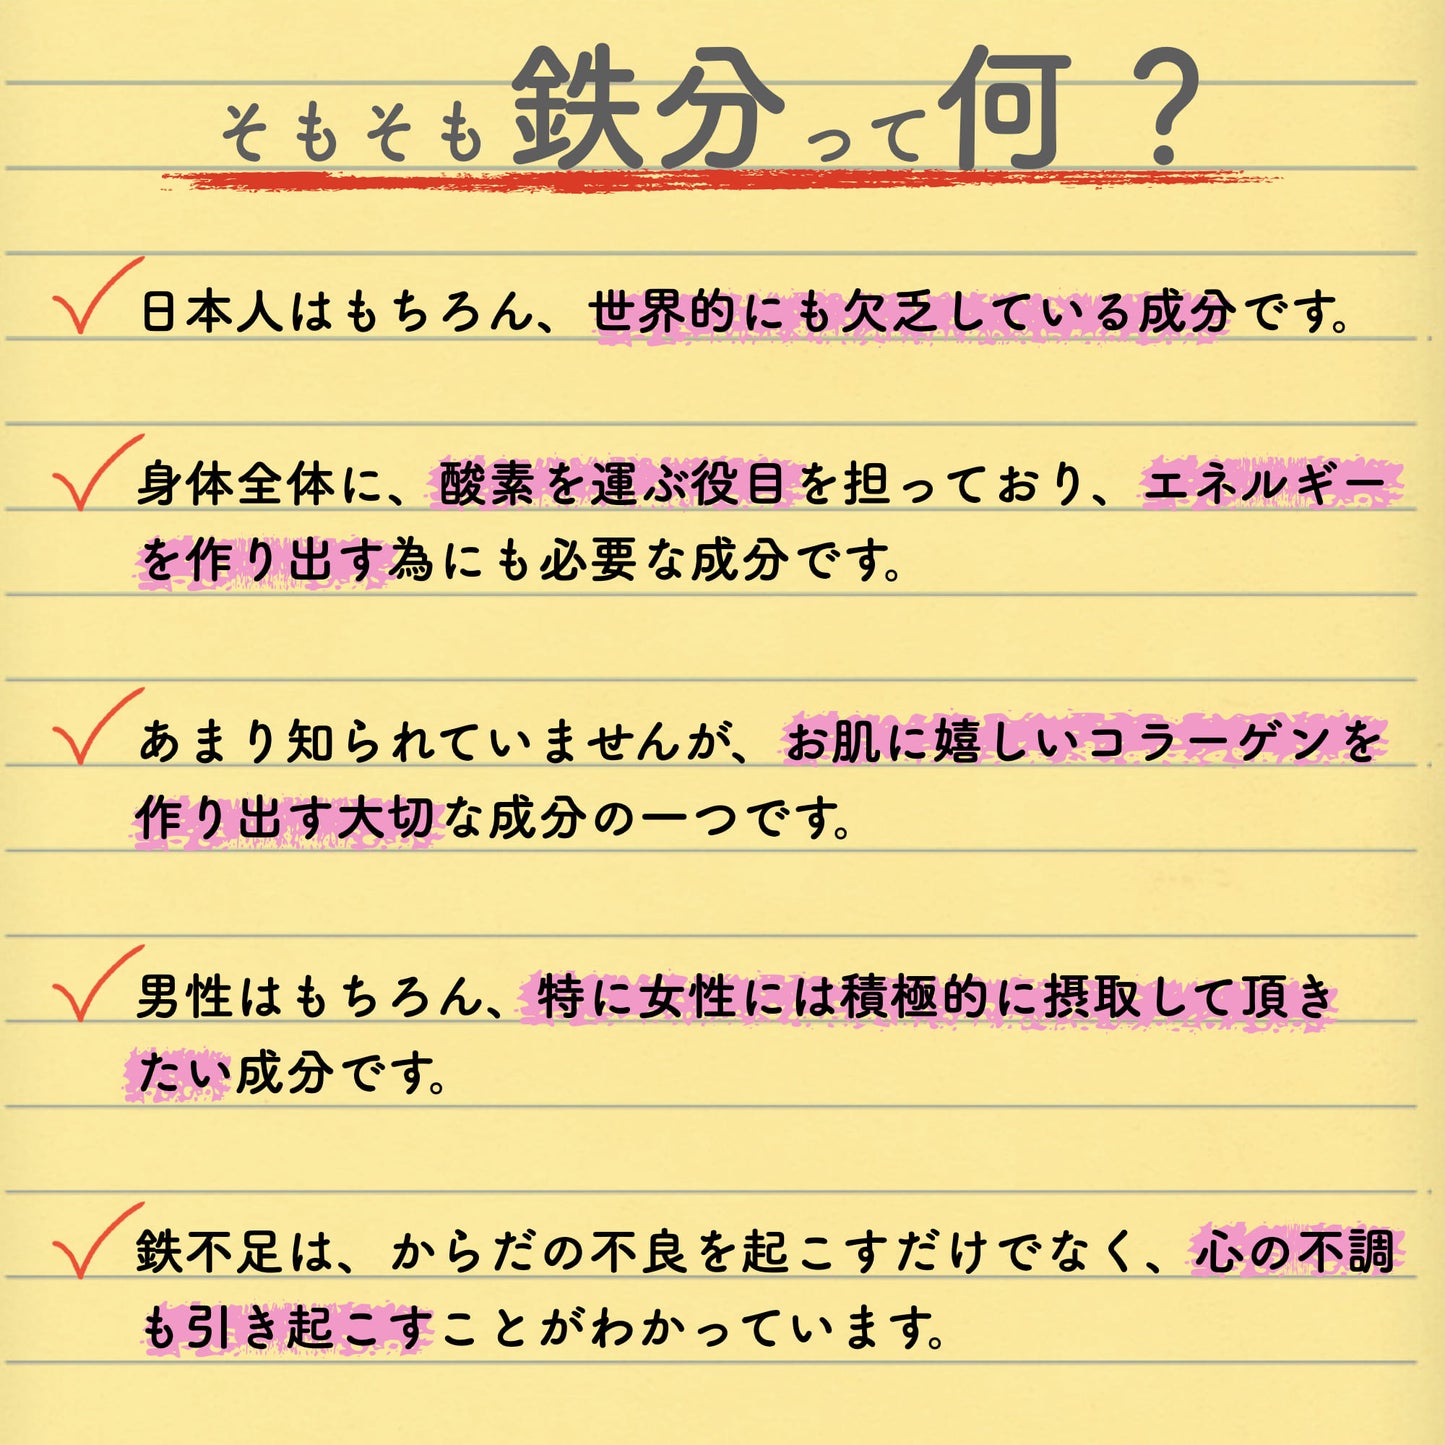 そもそも鉄分って何？
日本人はもちろん、世界的にも欠乏している成分です。
身体全体に、酸素を運ぶ役目を担っており、エネルギー
を作り出す為にも必要な成分です。
あまり知られていませんが、お肌に嬉しいコラーゲンを
作り出す大切な成分の一つです。
男性はもちろん、特に女性には積極的に摂取して頂き
たい成分です。
鉄不足は、からだの不良を起こすだけでなく、心の不調
も引き起こすことがわかっています。